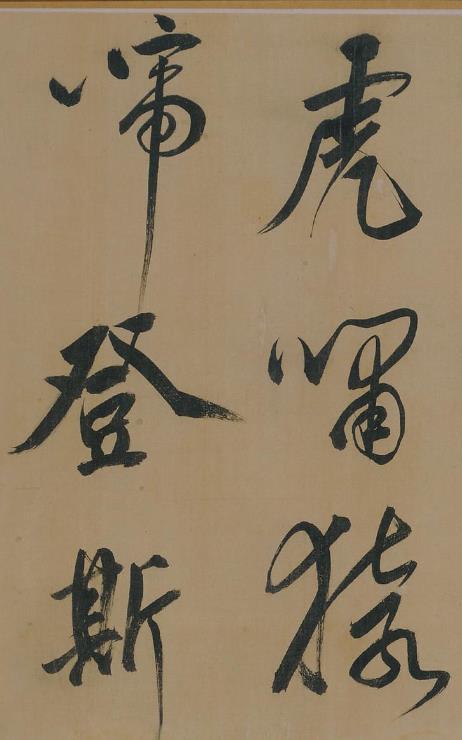 虎嘯猿
啼登斯